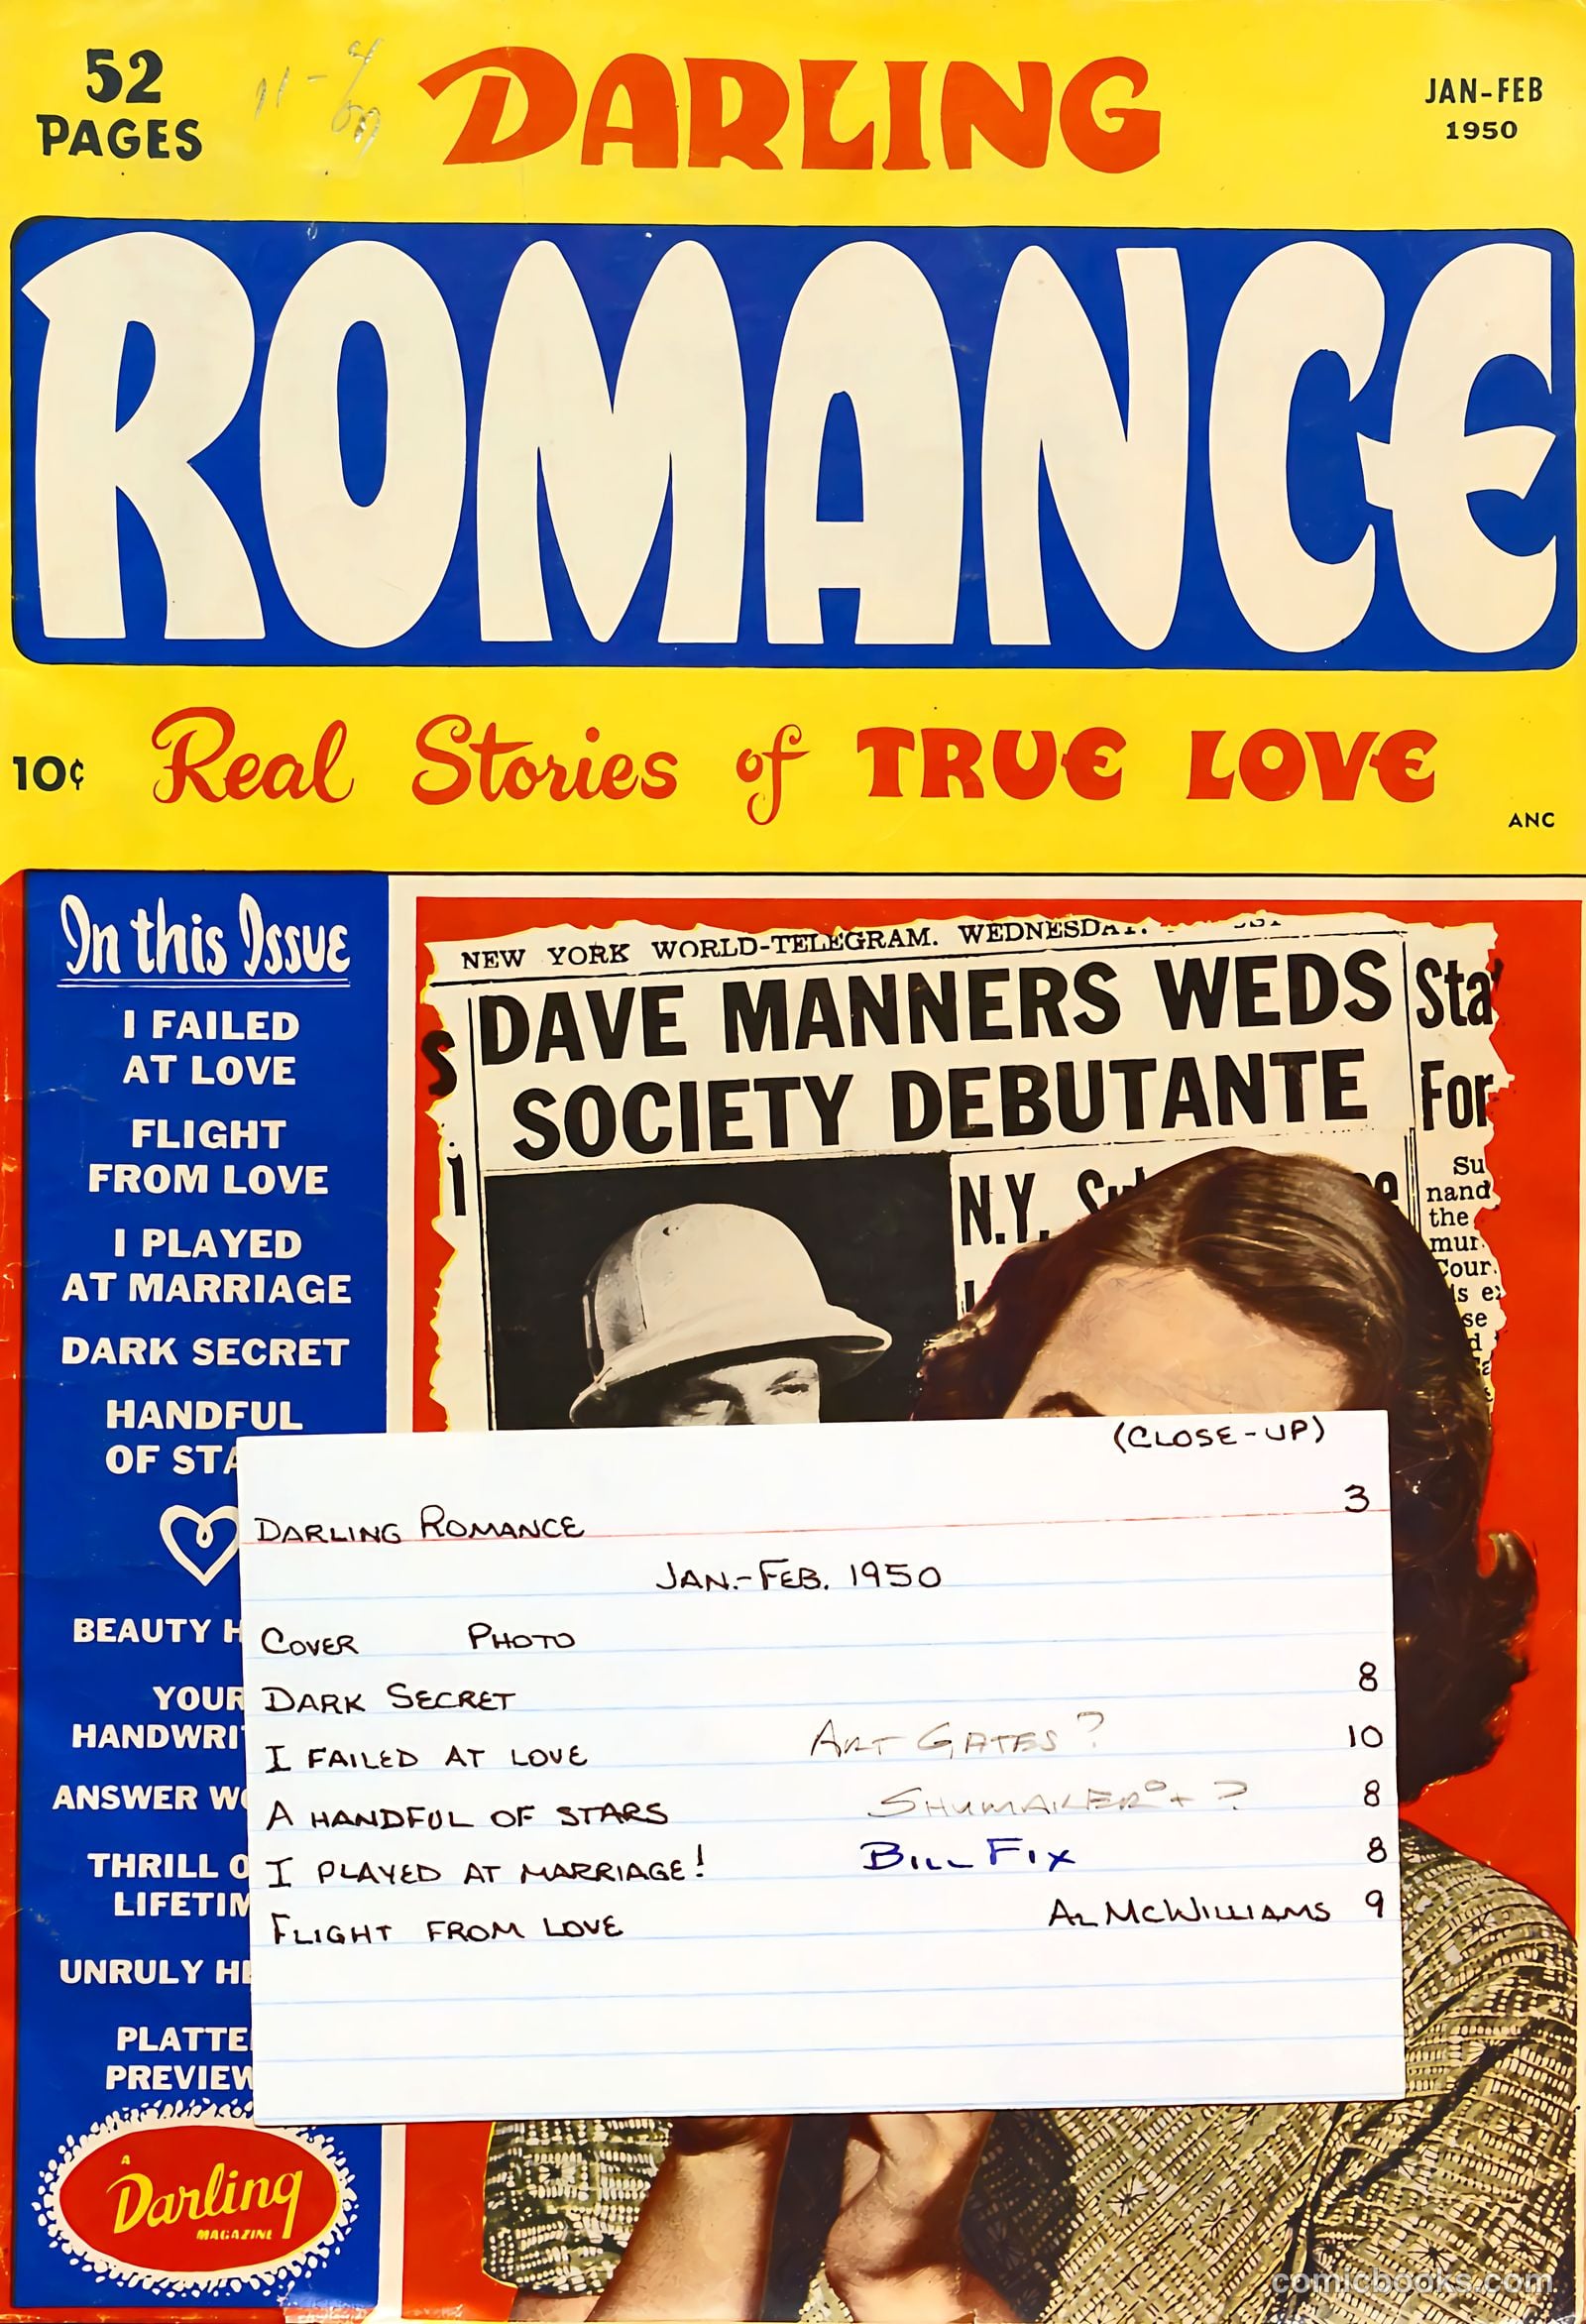 52
PAGES
DARLING
JAN-FEB
1950
ROMANCE
10¢ Real Stories of TRUE LOVE
ANC
In this Issue
I FAILED
AT LOVE
FLIGHT
FROM LOVE
I PLAYED
AT MARRIAGE
DARK SECRET
HANDFUL
OF STA
BEAUTY H
YOUR
HANDWRI
ANSWER W
THRILL O
LIFETIM
UNRULY H
PLATTE
PREVIEW
A
Darling
MAGAZINE
NEW YORK WORLD-TELEGRAM. WEDNESDA
DAVE MANNERS WEDS
SOCIETY DEBUTANTE
N.Y.
S
Sta
For
Su
nand
the
mur
Cour
s e
se
d
(CLOSE-UP)
DARLING ROMANCE 3
JAN.-FEB. 1950
COVER PHOTO
DARK SECRET 8
I FAILED AT LOVE ART GATES? 10
A HANDFUL OF STARS SHUMAKER + ? 8
I PLAYED AT MARRIAGE! BILL FIX 8
FLIGHT FROM LOVE AL MCWILLIAMS 9
comicbooks.com